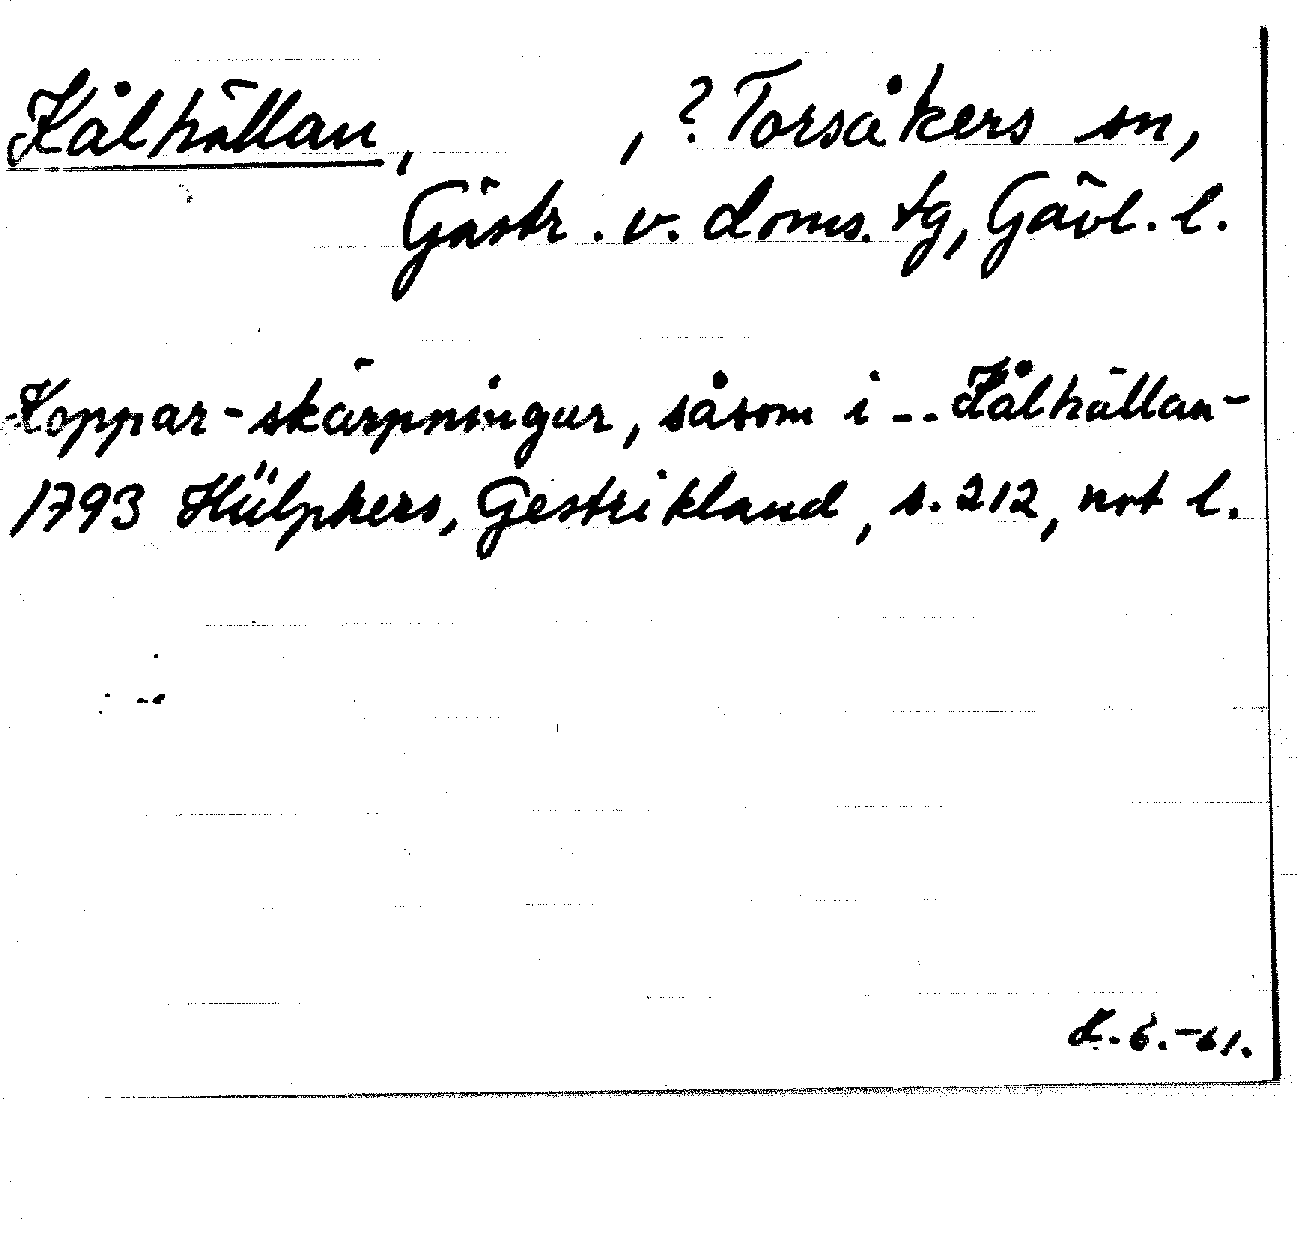 Kålhällan, , ? Torsåkers sn,
Gästr. v. doms. tg, Gävl. l.
Koppar-skärpningar, såsom i -- Kålhällan-
1793 Hülphers, Gestrikland, s. 212, not l.
L. G. -61.